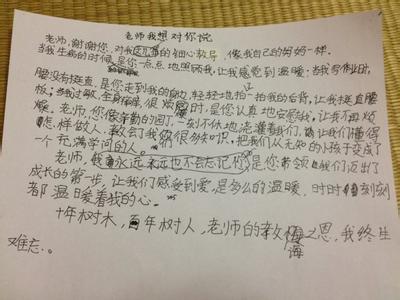 老师我想对你说
老师,谢谢您,对我的细心教导,像我自己的妈妈一样。
当我生病的时候是你一点点地照顾我,让我感觉到温暖;当我写作业时,
腰没有挺直,是您走到我的身边,轻轻地拍一拍我的后背,让我挺直腰
板;当我过敏,全身痒,很烦时,是您认真地安慰我,让我不再烦
燥。老师,您像辛勤的园丁,一刻不休地浇灌着我们,让我们懂得
怎样做人,教会我很多知识,把我们从无知的小孩子变成了
一个充满学问的人。
老师,我永远永远也不会忘记你是您带领我们迈出了
成长的第一步,让我们感受到爱,是多么的温暖,时时刻刻
都温日爱着我的心。
十年树木,百年树人,老师的教诲之恩,我终生
难忘。